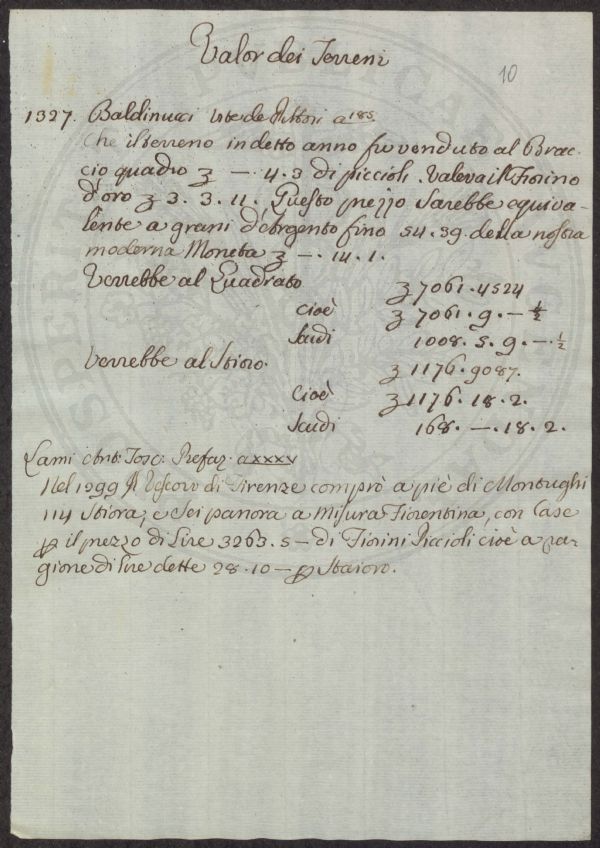 Valor dei Terreni
10
1327. Baldinucci Vite de Pittori a 185
Che il terreno in detto anno fu venduto al Brac-
cio quadro ʒ — . 4. 3 di piccioli. Valeva il Fiorino
d'oro ʒ 3. 3. 11. Questo prezzo sarebbe equiva-
lente a grani d'Argento fino 54. 39. della nostra
moderna Moneta ʒ — . 14. 1.
Verrebbe al Quadrato ʒ 7061. 4524
cioè ʒ 7061. 9. — ½
Scudi 1008. 5. 9. — . ½
Verrebbe al Stioro. ʒ 1176. 9087.
Cioè ʒ 1176. 18. 2.
Scudi 168. — . 18. 2.
Lami Ant: Tosc: Prefaz. a XXXV
Nel 1299 Il Vescovo di Firenze comprò a piè di Montughi
114 Stiora, e Sei panora a Misura Fiorentina, con Case
ꝑ il prezzo di Lire 3263. 5 — di Fiorini Piccioli cioè a ra-
gione di lire dette 28. 10 — ꝑ Staioro.